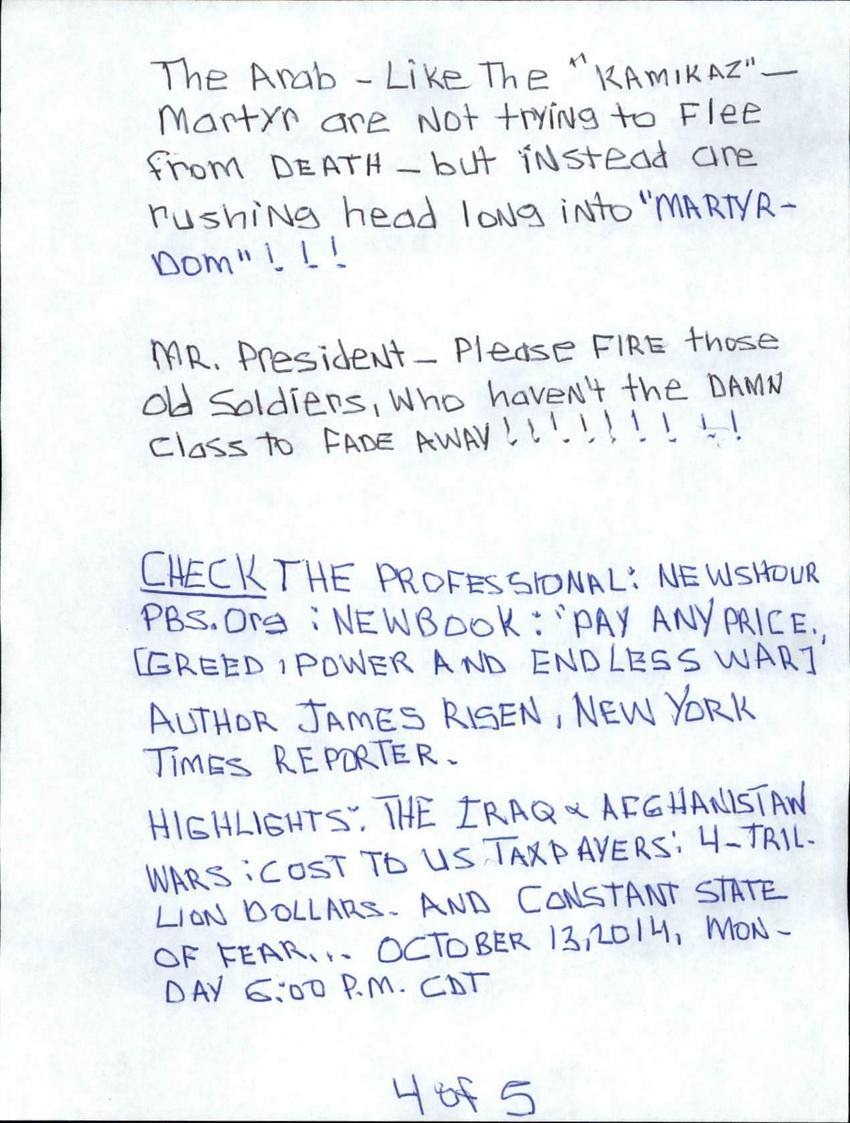 The Arab - Like The "KAMIKAZ" —
Martyr are Not trying to Flee
from DEATH - but iNstead are
rushiNg head loNg iNto "MARTYR-
Dom"!!!
MR. PresideNt - Please FIRE those
old Soldiers, Who haveN't the DAMN
Class to FADE AWAY!!!!!!!!!
CHECK THE PROFESSIONAL: NEWSHOUR
PBS.Org : NEWBOOK: "PAY ANY PRICE.,
[GREED, POWER AND ENDLESS WAR]
AUTHOR JAMES RISEN, NEW YORK
TiMES REPORTER.
HIGHLIGHTS: THE IRAQ & AFGHANISTAN
WARS: COST TO US TAXPAYERS: 4-TRIL-
LION DOLLARS. AND CONSTANT STATE
OF FEAR... OCTOBER 13, 2014, MON-
DAY 6:00 P.M. CDT
4 of 5